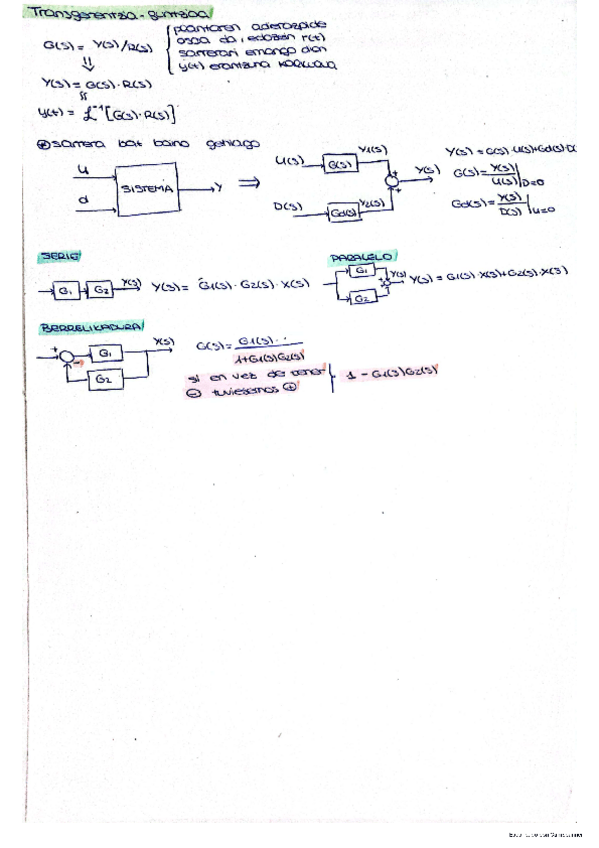 Transferentzia-funtzioa
G(s) = Y(s)/R(s)
plantaren adierazpide
osoa da, edozein r(t)
sarrerari emango dion
y(t) erantzuna
⇓
Y(s) = G(s)·R(s)
y(t) = ℒ⁻¹[G(s)·R(s)]
⊛ sarrera bat baino gehiago
u
d
SISTEMA
y
⇒
U(s)
G(s)
Y1(s)
D(s)
Gd(s)
Y2(s)
+
+
Y(s)
Y(s) = G(s)·U(s)+Gd(s)·D(
G(s) = Y(s)/U(s)|D=0
Gd(s) = Y(s)/D(s)|U=0
SERIE
G1
G2
Y(s)
Y(s) = G1(s)·G2(s)·X(s)
PARALELO
G1
G2
Y(s)
Y(s) = G1(s)·X(s)+G2(s)·X(s)
BERRELIKADURA
+
-
G1
G2
Y(s)
G(s) = G1(s)
1+G1(s)G2(s)
si en vez de tener
⊖ tuviesemos ⊕
1 - G1(s)G2(s)